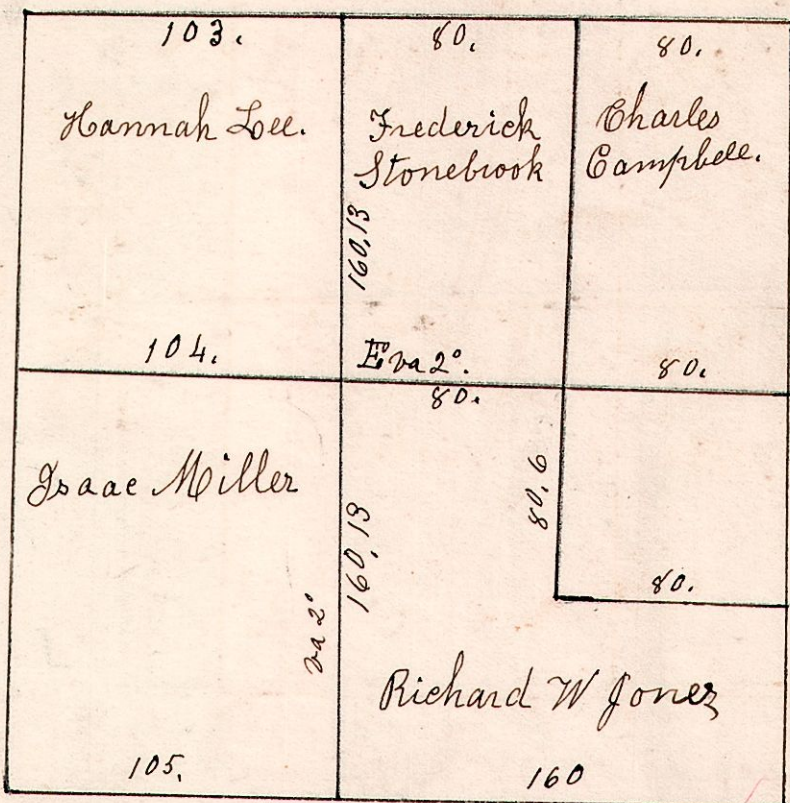 103.
80.
80.
Hannah Lee.
Frederick
Stonebrook
Charles
Campbell.
160,13
104.
E va 2°.
80.
80.
Isaac Miller
160,13
80,6
80.
va 2°
Richard W Jones
105.
160